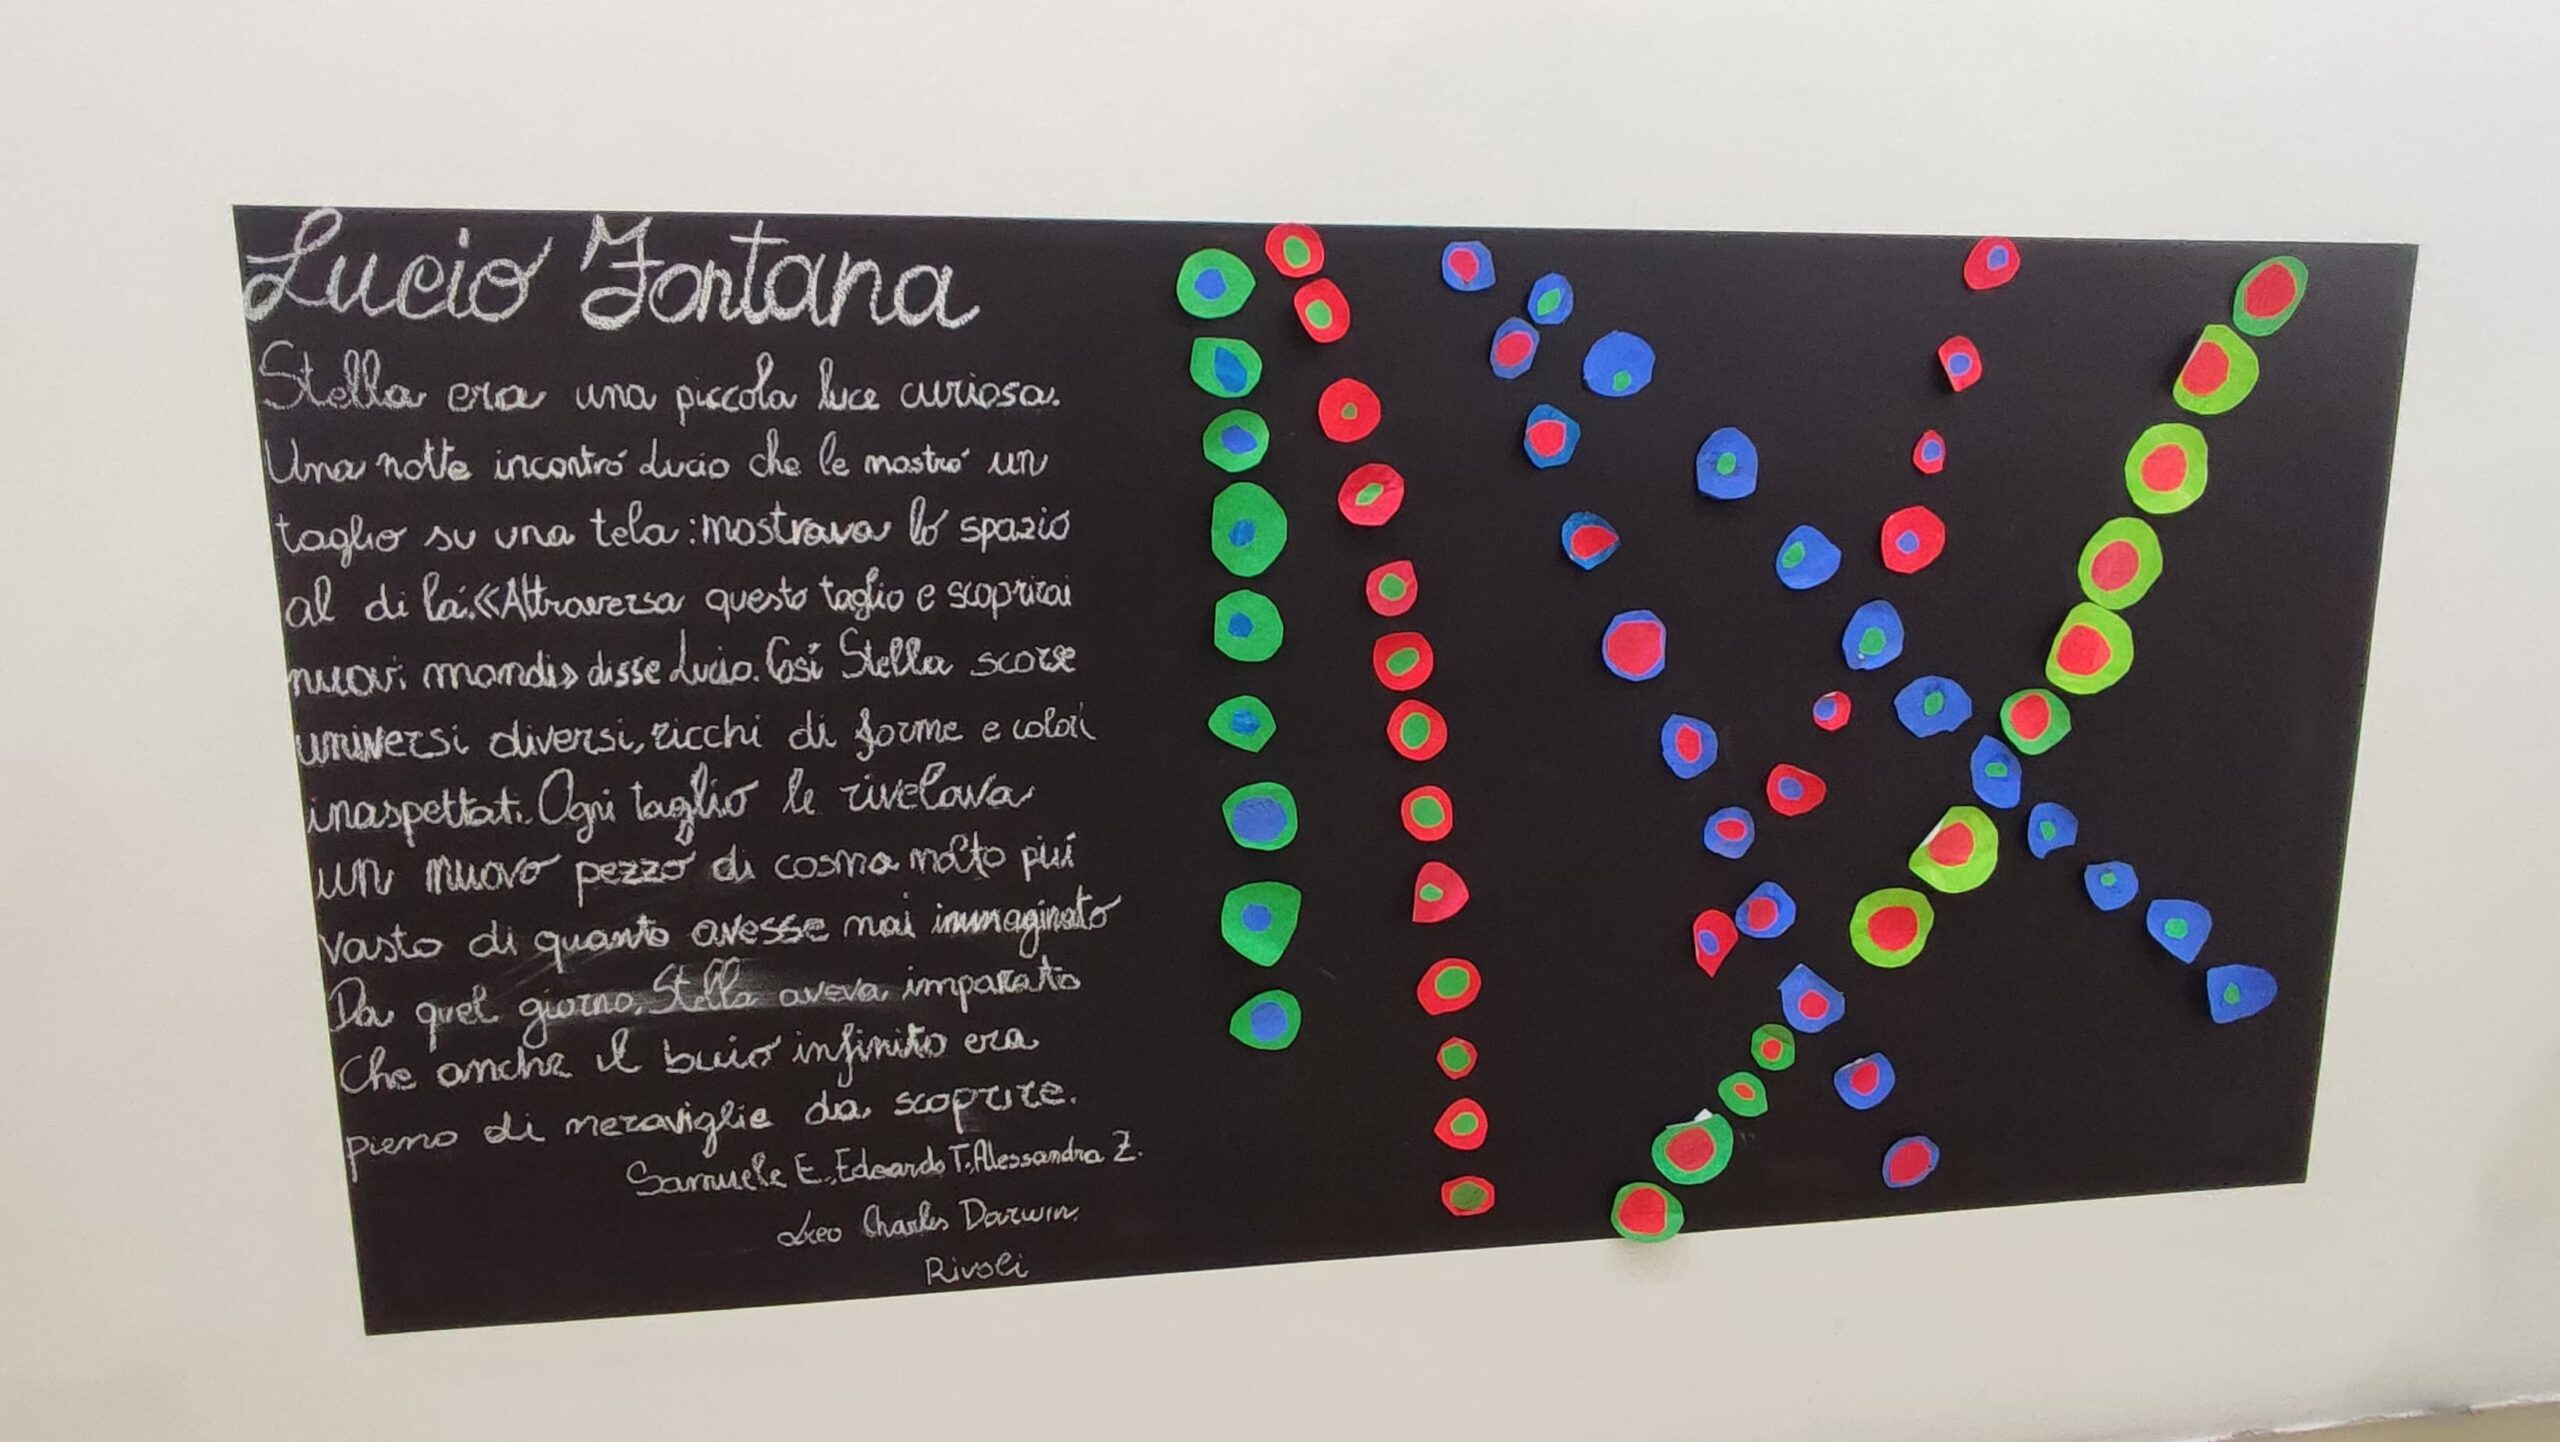 Lucio Fontana
Stella era una piccola luce curiosa.
Una notte incontró Lucio che le mostró un
taglio su una tela: mostrava lo spazio
al di lá. «Attraversa questo taglio e scoprirai
nuovi mondi» disse Lucio. Cosí Stella scorse
universi diversi, ricchi di forme e colori
inaspettati. Ogni taglio le rivelava
un nuovo pezzo di cosmo molto piú
vasto di quanto avesse mai immaginato
Da quel giorno, Stella aveva imparato
che anche il buio infinito era
pieno di meraviglie da scoprire.
Samuele E., Edoardo T., Alessandra Z.
Liceo Charles Darwin,
Rivoli